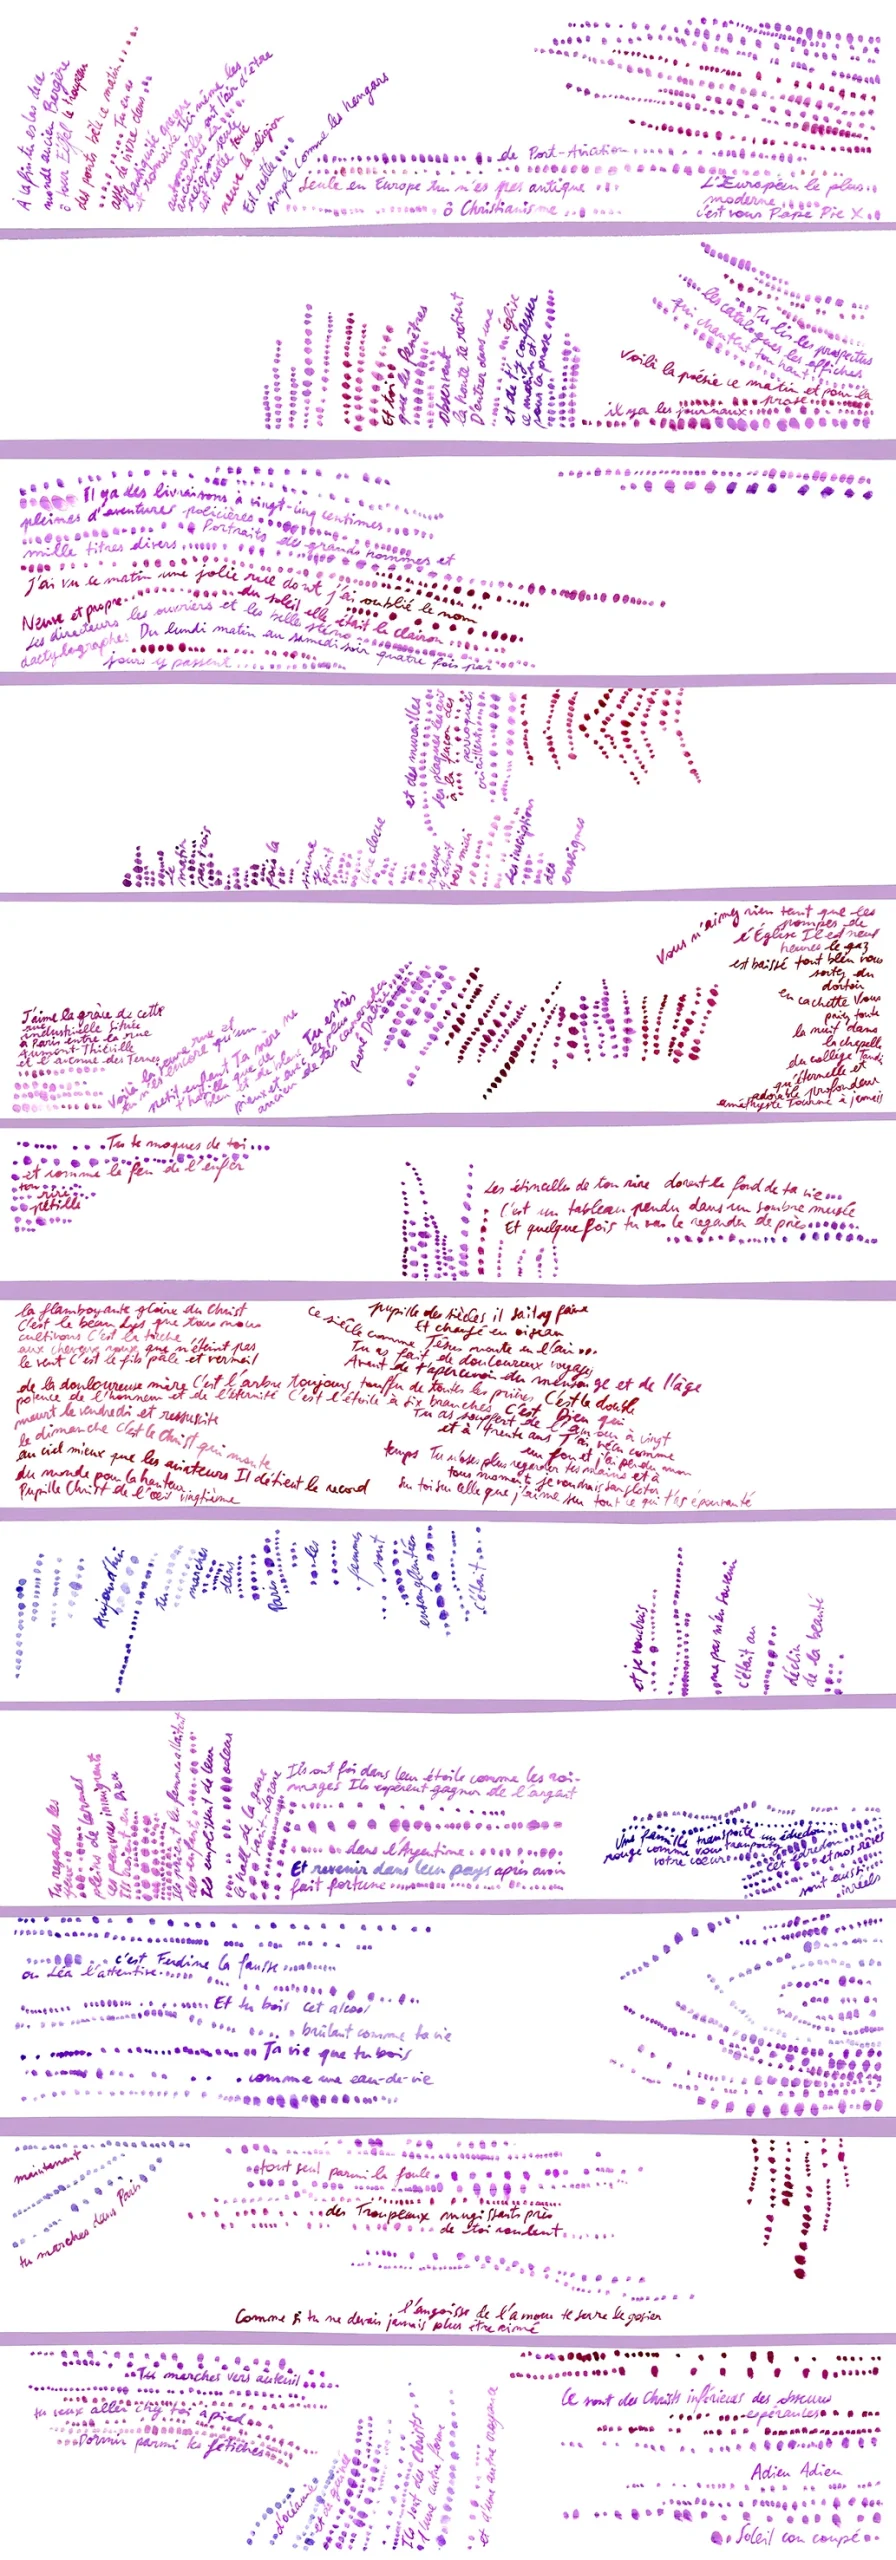 À la fin tu es las de ce
monde ancien Bergère
ô tour Eiffel le troupeau
des ponts bêle ce matin
Tu en as
assez de vivre dans
l'antiquité grecque
et romaine Ici même les
automobiles ont l'air d'être
anciennes La
religion seule
est restée toute
neuve la religion
Est restée
simple comme les hangars
de Port-Aviation
Seule en Europe tu n'es pas antique
ô Christianisme
L'Européen le plus
moderne
c'est vous Pape Pie X
Et toi
que les fenêtres
observent
la honte te retient
D'entrer dans une
église
et de t'y confesser
ce matin et
pour la prose
Tu lis les prospectus
les catalogues les affiches
qui chantent tout haut
Voilà la poésie ce matin et pour la
prose
il y a les journaux
Il y a des livraisons à vingt-cinq centimes
pleines d'aventures policières
Portraits des grands hommes et
mille titres divers
J'ai vu ce matin une jolie rue dont j'ai oublié le nom
Neuve et propre
du soleil elle était le clairon
Les directeurs les ouvriers et les belles sténo
dactylographes Du lundi matin au samedi soir quatre fois par
jour y passent
et des murailles
les plaques les avis
à la façon des
perroquets
criaillent
Le
matin
par trois
fois la
sirène
y gémit
Une cloche
rageuse
y aboit
vers midi
Les inscriptions
des
enseignes
J'aime la grâce de cette
rue
industrielle Située
à Paris entre la rue
Aumont-Thiéville
et l'avenue des Ternes
Voilà la jeune rue et
tu n'es encore qu'un
petit enfant Ta mère ne
t'habille que de
bleu et de blanc Tu es très
pieux et avec le plus
ancien de tes camarades
René Dalize
Vous n'aimez rien tant que les
pompes de
l'Église Il est neuf
heures le gaz
est baissé tout bleu vous
sortez du
dortoir
en cachette Vous
priez toute
la nuit dans
la chapelle
du collège Tandis
qu'éternelle et
adorable profondeur
améthyste Tourne à jamais
Tu te moques de toi
et comme le feu de l'enfer
ton
rire
pétille
Les étincelles de ton rire dorent le fond de ta vie
C'est un tableau pendu dans un sombre musée
Et quelquefois tu vas le regarder de près
la flamboyante gloire du Christ
C'est le beau lys que tous nous
cultivons C'est la torche
aux cheveux roux que n'éteint pas
le vent C'est le fils pâle et vermeil
de la douloureuse mère C'est l'arbre toujours touffu de toutes les prières C'est la double
potence de l'honneur et de l'éternité C'est l'étoile à six branches C'est Dieu qui
meurt le vendredi et ressuscite
le dimanche C'est le Christ qui monte
au ciel mieux que les aviateurs Il détient le record
du monde pour la hauteur
Pupille Christ de l'œil vingtième
pupille des siècles il sait y faire
Et changé en oiseau
ce siècle comme Jésus monte en l'air
Tu as fait de douloureux voyages
Avant de t'apercevoir du mensonge et de l'âge
Tu as souffert de l'amour à vingt
et à trente ans J'ai vécu comme
un fou et j'ai perdu mon
temps Tu n'oses plus regarder tes mains et à
tous moments je voudrais sangloter
Sur toi sur celle que j'aime sur tout ce qui t'as épouvanté
Aujourd'hui
tu
marches
dans
Paris
les
femmes
sont
ensanglantées
C'était
et je voudrais
ne pas m'en souvenir
c'était au
déclin
de la beauté
Tu regardes les
yeux
pleins de larmes
ces pauvres émigrants
Ils croient en
Dieu
Ils prient les femmes allaitent
des enfants
Ils emplissent de leur
odeur
le hall de la gare
Saint-Lazare
Ils ont foi dans leur étoile comme les rois-
mages Ils espèrent gagner de l'argent
dans l'Argentine
Et revenir dans leur pays après avoir
fait fortune
Une famille transporte un édredon
rouge comme vous transportez
votre cœur
Cet édredon
et nos rêves
sont aussi
irréels
c'est Ferdine la fausse
ou Léa l'attentive
Et tu bois cet alcool
brûlant comme ta vie
Ta vie que tu bois
comme une eau-de-vie
maintenant
tu marches dans Paris
tout seul parmi la foule
des Troupeaux mugissants près
de toi roulent
l'angoisse de l'amour te serre le gosier
Comme si tu ne devais jamais plus être aimé
Tu marches vers auteuil
tu veux aller chez toi à pied
Dormir parmi tes fétiches
d'océanie
et de guinée
Ils sont des Christs
d'une autre forme
et d'une autre croyance
Ce sont des Christs inférieurs des obscures
espérances
Adieu Adieu
Soleil cou coupé